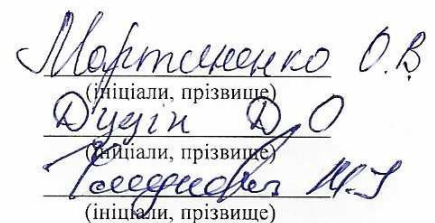 Мартиненко О.В
(ініціали, прізвище)
Дудін Д О
(ініціали, прізвище)
(ініціали, прізвище)